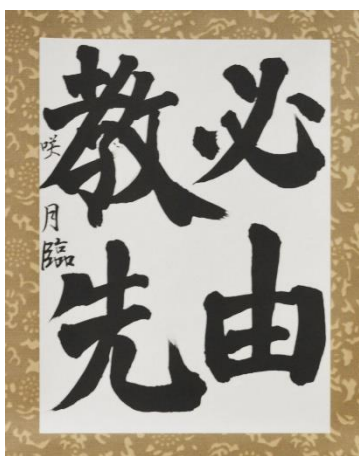 必由
教先
咲月臨